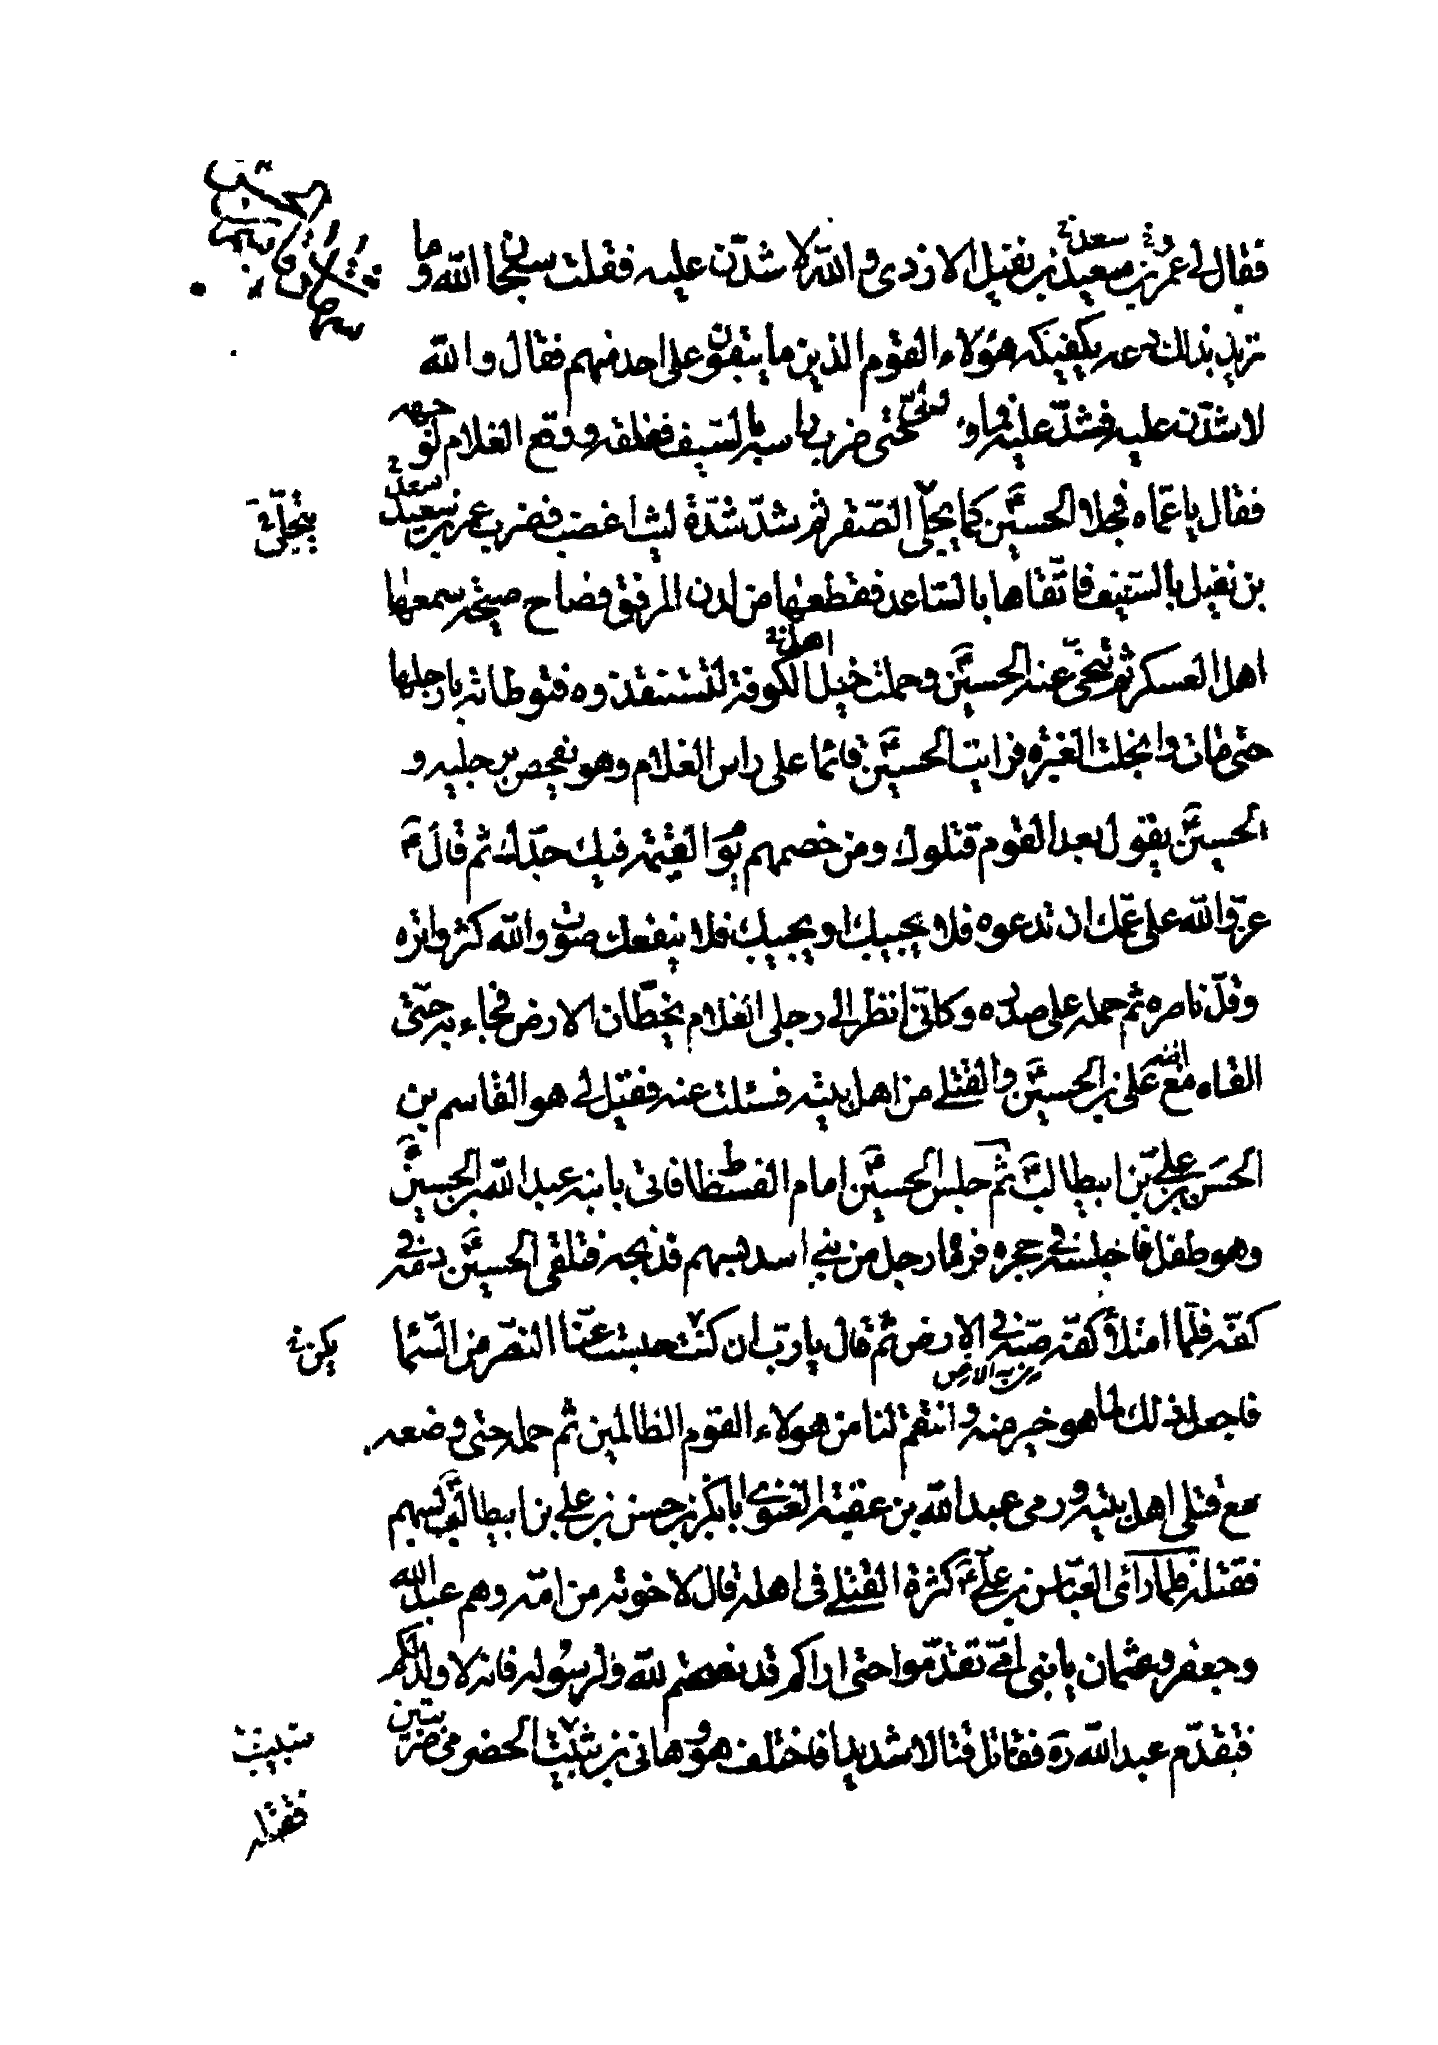 فقال لي عمر بن سعيد بن نفيل الازدي والله لاشدن عليه فقلت سبحان الله وما
تريد بذلك دعه يكفيكه هؤلاء القوم الذين ما يبقون على احد منهم فقال والله
لاشدن عليه فشد عليه فما ولى حتى ضرب راسه بالسيف ففلقه ووقع الغلام لوجهه
فقال يا عماه فجلا الحسين كما يجلى الصقر ثم شد شدة ليث اغضب فضرب عمر بن سعيد
بن نفيل بالسيف فاتقاها بالساعد فقطعها من لدن المرفق فصاح صيحة سمعها
اهل العسكر ثم تنحى عنه الحسين وحملت خيل اهل الكوفة لتستنقذوه فتوطاته بارجلها
حتى مات وانجلت الغبرة فرايت الحسين قائما على راس الغلام وهو يفحص برجليه و
الحسين يقول بعدا لقوم قتلوك ومن خصمهم يوم القيمة فيك جدك ثم قال
عز والله على عمك ان تدعوه فلا يجيبك او يجيبك فلا ينفعك صوت والله كثر واتره
وقل ناصره ثم حمله على صدره وكاني انظر الى رجلي الغلام يخطان الارض فجاء به حتى
القاه مع ابنه علي بن الحسين والقتلى من اهل بيته فسئلت عنه فقيل لي هو القاسم بن
الحسن بن علي بن ابيطالب ثم جلس الحسين امام الفسطاط فاتى بابنه عبد الله بن الحسين
وهو طفل فاجلسه في حجره فرماه رجل من بني اسد بسهم فذبحه فتلقى الحسين دمه في
كفه فلما امتلأ كفه صبه في الارض ثم قال يا رب ان كنت حبست عنا النصر من السماء
فاجعل ذلك لما هو خير منه وانتقم لنا من هولاء القوم الظالمين ثم حمله حتى وضعه
مع قتلى اهل بيته ورمى عبد الله بن عقبة الغنوي ابا بكر بن حسن بن علي بن ابيطالب بسهم
فقتله فلما رائ العباس بن علي كثرة القتلى في اهله قال لاخوته من امه وهم عبد الله
وجعفر وعثمان يا بني امي تقدموا حتى اراكم قد نصحتم لله ولرسوله فانه لا ولد لكم
فتقدم عبد الله ره فقاتل قتالا شديدا فاختلف هو وهانى بن ثبيت الحضرمي ضربتين
فقتله